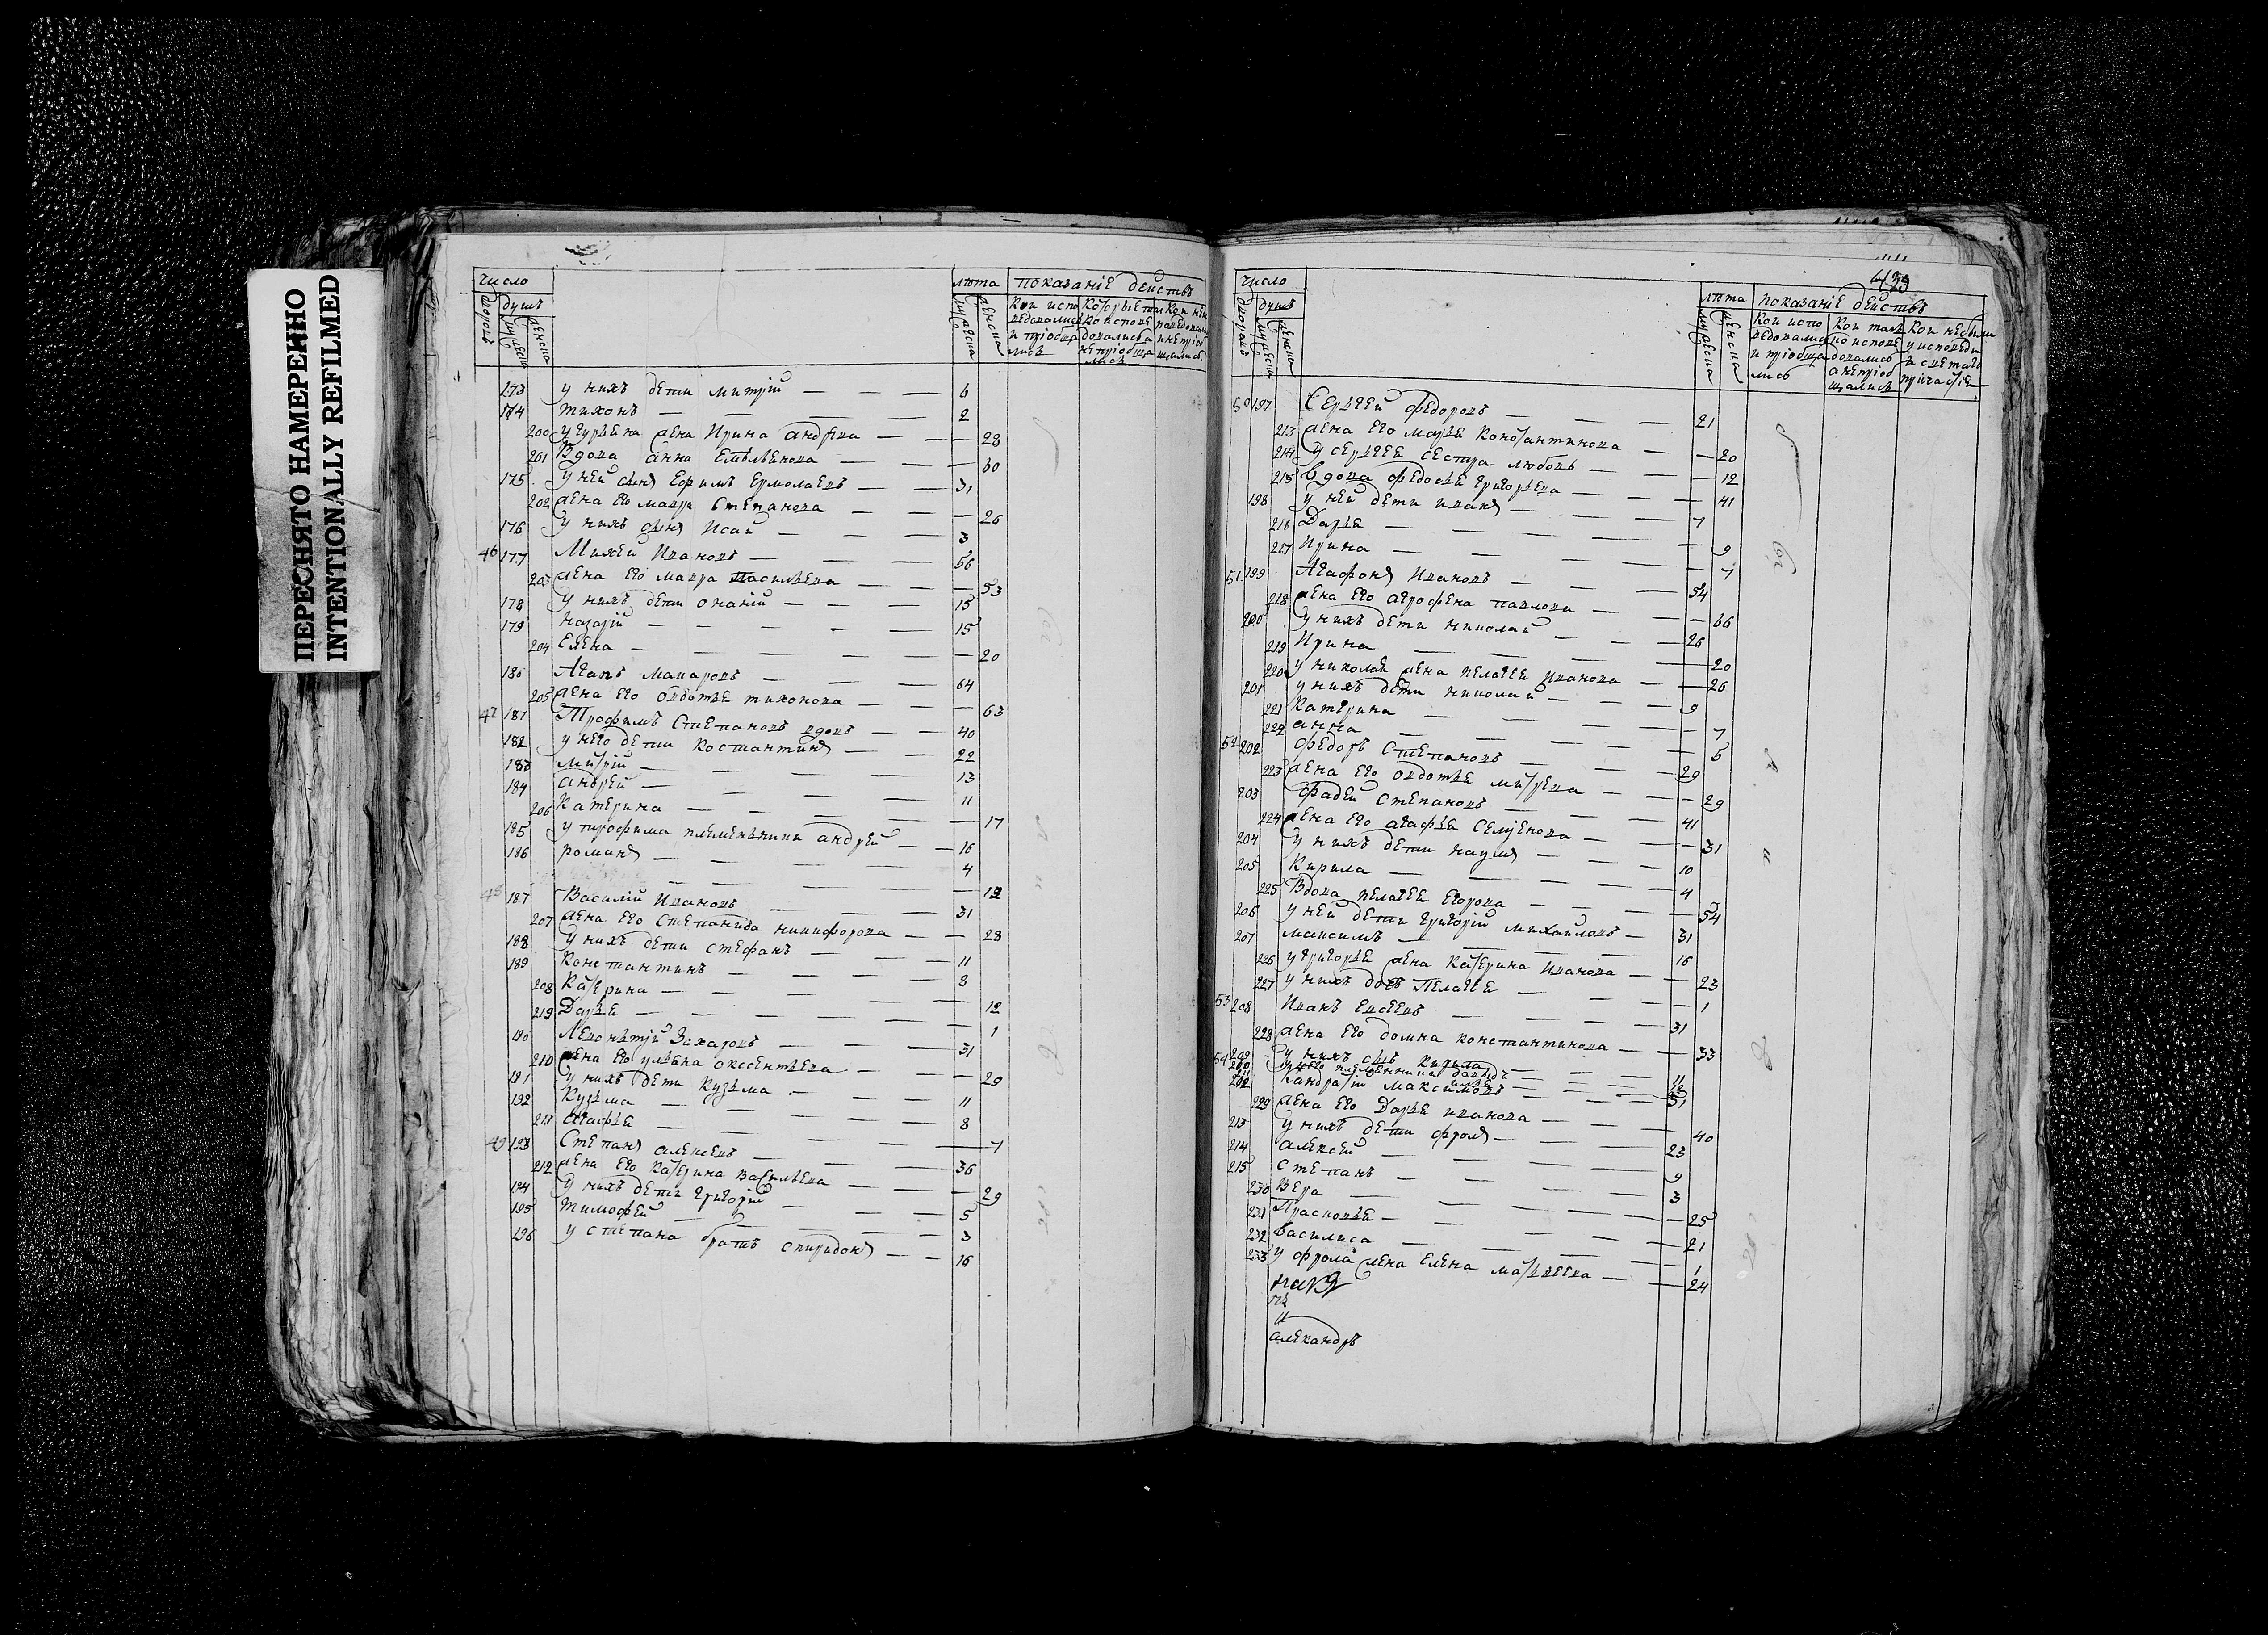 ПЕРЕСНЯТО НАМЕРЕННО
INTENTIONALLY REFILMED
число
лѣта показанїе действъ
дворовъ душъ
мужеска женска
мужеска женска
кои испо
ведовались
и прїобща
лись
173 у нихъ дети митрїй 6
174 тихонъ 2
200 жена Ирина андреева 28
201 Вдова анна Емельянова 60
175 у ней сынъ Ефимъ Ермолаевъ 31
202 жена его мавра степанова 26
176 у нихъ сынъ Исай 3
46 177 Михей Ивановъ 56
203 жена его мавра васильева 53
178 у нихъ дети онанїй 15
179 назарїй 15
204 Елена 20
180 Агапъ макаровъ 64
205 жена его овдотья тихонова 63
47 181 Трофимъ Степановъ вдовъ 40
182 у него дети костантинъ 22
183 митрїй 13
184 андрей 11
206 катерина 17
185 у трофима племянники андрей 16
186 романъ 4
12
48 187 Василїй Ивановъ 31
207 жена его степанида никифорова 28
188 у нихъ дети стефанъ 11
189 константинъ 3
208 катерина 12
219 Дарья 1
190 Захаровъ 31
210 жена его ульяна оксентьева 29
191 у нихъ дети кузьма 11
192 кузьма 8
211 агафья 7
49 193 Степанъ алексеевъ 36
212 жена его катерина васильева 29
194 у нихъ дети григорїй 5
195 тимофей 3
196 у степана братъ спиридонъ 16
число
лѣта показанїе действъ
дворовъ душъ
мужеска женска
мужеска женска
кои испо
ведовались
и прїобща
лись
50 197 Сергей федоровъ 21
213 жена его марья константинова 20
214 у сергея сестра любовь 12
215 вдова федосья григорьева 41
198 у ней дети иванъ 7
216 Дарья 9
217 Ирина 7
51 199 Агафонъ Ивановъ 54
218 жена его агрофена павлова 66
200 у нихъ дети николай 26
219 Ирина 20
220 у николая жена пелагея иванова 26
201 у нихъ дети николай 9
221 катерина 7
222 анна 5
52 202 федотъ степановъ 29
223 жена его овдотья 29
203 фадей степановъ 41
224 жена его агафья 31
204 у нихъ дети наумъ 10
205 Кирила 4
225 Вдова пелагея егорова 54
206 у ней дети григорїй михайловъ 31
207 максимъ 16
226 у григорья жена катерина иванова 23
227 у нихъ дочь пелагея 1
53 208 Иванъ Евсеевъ 31
228 жена его домна константинова 33
54 209 у нихъ сынъ 11
Кандратїй максимовъ 51
229 жена его Дарья иванова 40
213 у нихъ дети фролъ 23
214 алексей 9
215 степанъ 3
230 Вера 25
231 Прасковья 21
232 василиса 1
233 у фрола жена Елена матвеева 24
алекандръ